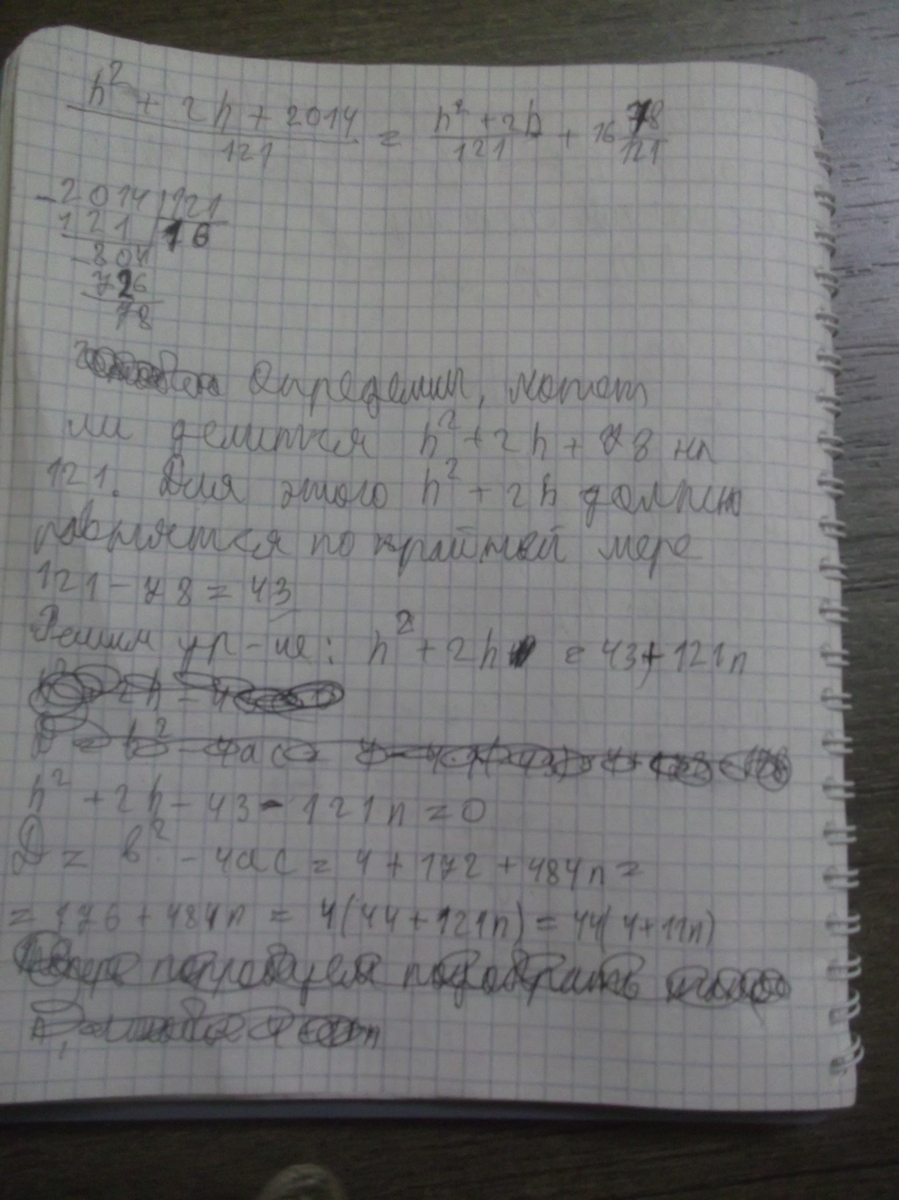 h² + 2h + 2014 / 121 = h² + 2h / 121 + 16 78/121
2014 | 121
121 | 16
804
726
78
Определим, может
ли делиться h² + 2h + 78 на
121. Для этого h² + 2h должно
равняться по крайней мере
121 - 78 = 43
Решим ур-ие: h² + 2h = 43 + 121n
h² + 2h - 43 - 121n = 0
D = b² - 4ac = 4 + 172 + 484n =
= 176 + 484n = 4(44 + 121n) = 44(4 + 11n)